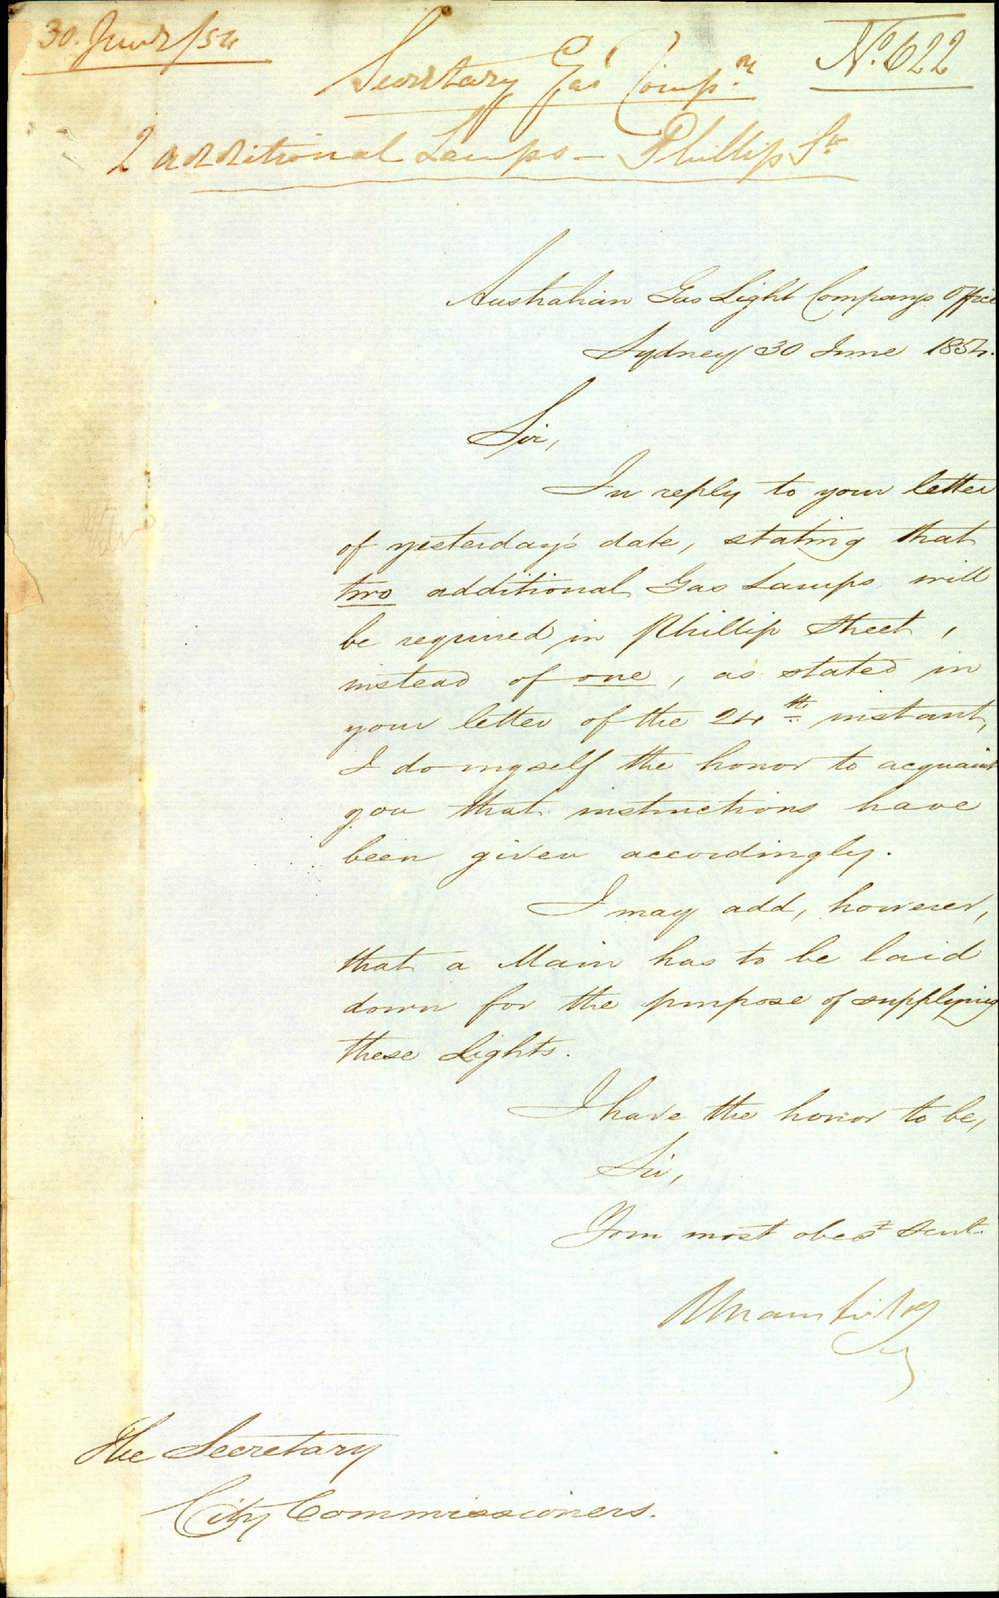 30. June/54
No. 622
Secretary Gas Comp.ny
2 additional Lamps — Phillip St
Australian Gas Light Companys Office
Sydney 30 June 1854.
Sir,
In reply to your letter
of yesterday's date, stating that
two additional Gas Lamps will
be required in Phillip Street,
instead of one, as stated in
your letter of the 24th instant,
I do myself the honor to acquaint
you that instructions have
been given accordingly.
I may add, however,
that a Main has to be laid
down for the purpose of supplying
these Lights.
I have the honor to be,
Sir,
Your most obedt Servt.
The Secretary
City Commissioners.